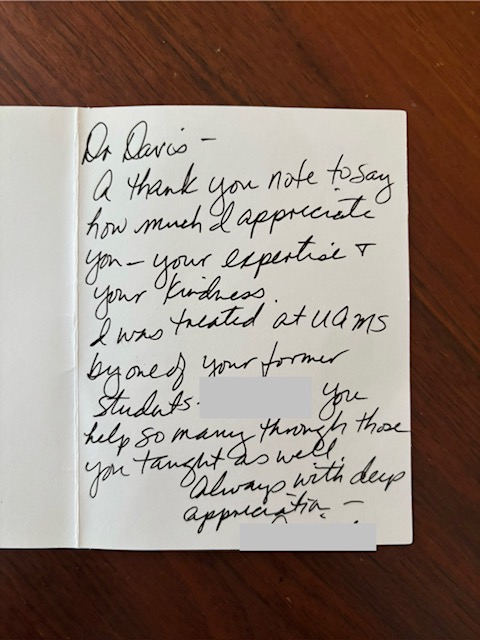 Dr Davis –
A thank you note to say
how much I appreciate
you – your expertise +
your kindness.
I was treated at UAMS
by one of your former
students. You
help so many through those
you taught as well.
Always with deep
appreciation –